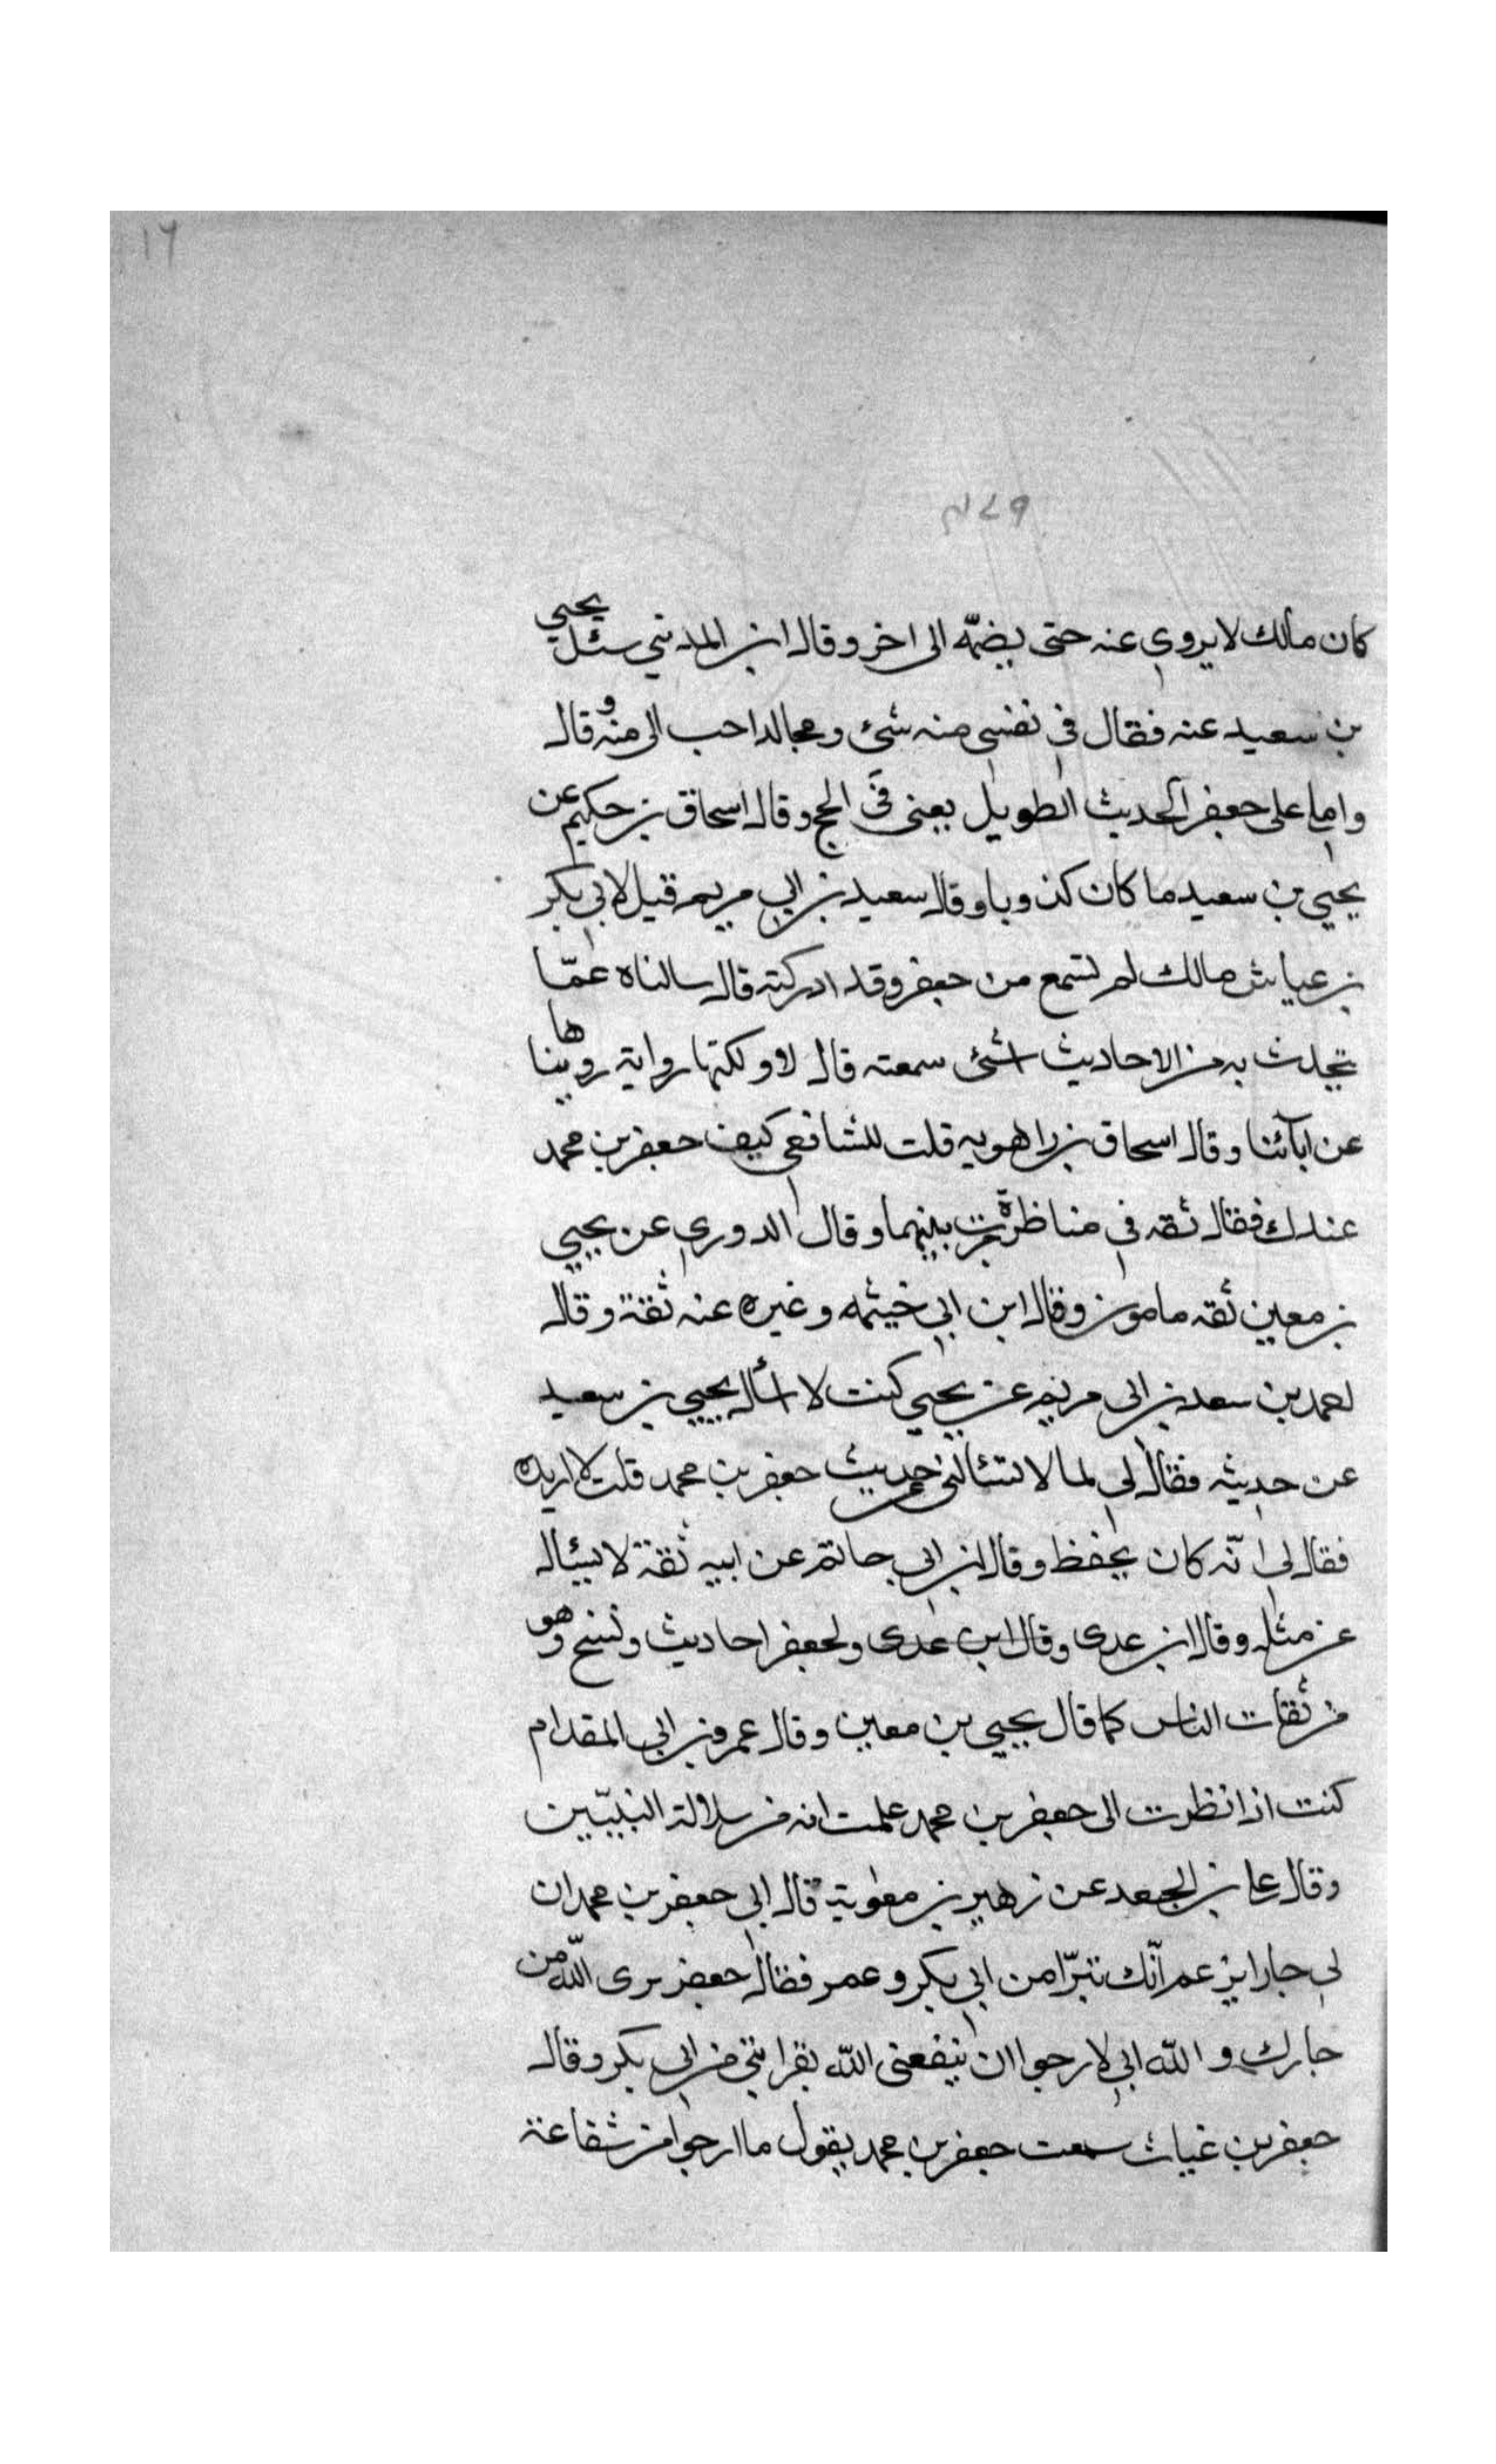 ١٦
كان مالك لا يروي عنه حتى يضمّه الى اخر وقال ابن المديني سئل يحيي
بن سعيد عنه فقال في نفسي منه شئ ومجالد احب الى منه وقال
واملى على جعفر الحديث الطويل يعنى في الحج وقال اسحاق بن حكيم عن
يحيي بن سعيد ما كان كذوبا وقال سعيد بن ابي مريم قيل لابي بكر
بن عياش مالك لم تسمع من جعفر وقد ادركته قال سالناه عمّا
يتحدث به من الاحاديث اشئ سمعته قال لا ولكنها رواية رويناها
عن ابآئنا وقال اسحاق بن راهويه قلت للشافعي كيف جعفر بن محمد
عندك فقال ثقه في مناظرة جرت بينهما وقال الدوري عن يحيي
بن معين ثقه مامون وقال ابن ابي خيثمه وغيره عنه ثقة وقال
احمد بن سعد بن ابى مريم عن يحيي كنت لا اسأل يحيي بن سعيد
عن حديثه فقال لي لما لا تسئالنى عن حديث جعفر بن محمد قلت لا اريده
فقال لي انّه كان يحفظ وقال ابن ابي حاتم عن ابيه ثقة لا يسئال
عن مثله وقال ابن عدى وقال ابن عدى ولجعفر احاديث ونسخ وهو
من ثقات الناس كما قال يحيي بن معين وقال عمرو بن ابي المقدام
كنت اذا نظرت الى جعفر بن محمد علمت انه من سلالة النبيّين
وقال على بن الجعد عن زهير بن معوية قال ابي جعفر بن محمد ان
لي جارا يزعم انّك تتبرّا من ابي بكر وعمر فقال جعفر برى اللّه من
جارك و اللّه اني لارجوا ان ينفعنى اللّه بقرابتي من ابي بكر وقال
جعفر بن غياث سمعت جعفر بن محمد يقول ما ارجوا من شفاعة